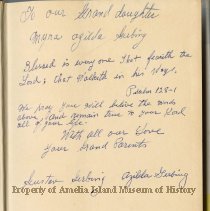 To our Grand daughter
Myra Ogilda Serbing
Blessed is every one that feareth the
Lord; that walketh in his ways.
Psalm 128-1
We pray you will believe the words
above, and remain true to your God
all of your life.
With all our love
Your Grand Parents
Gustav Serbing Ogilda Serbing
Property of Amelia Island Museum of History